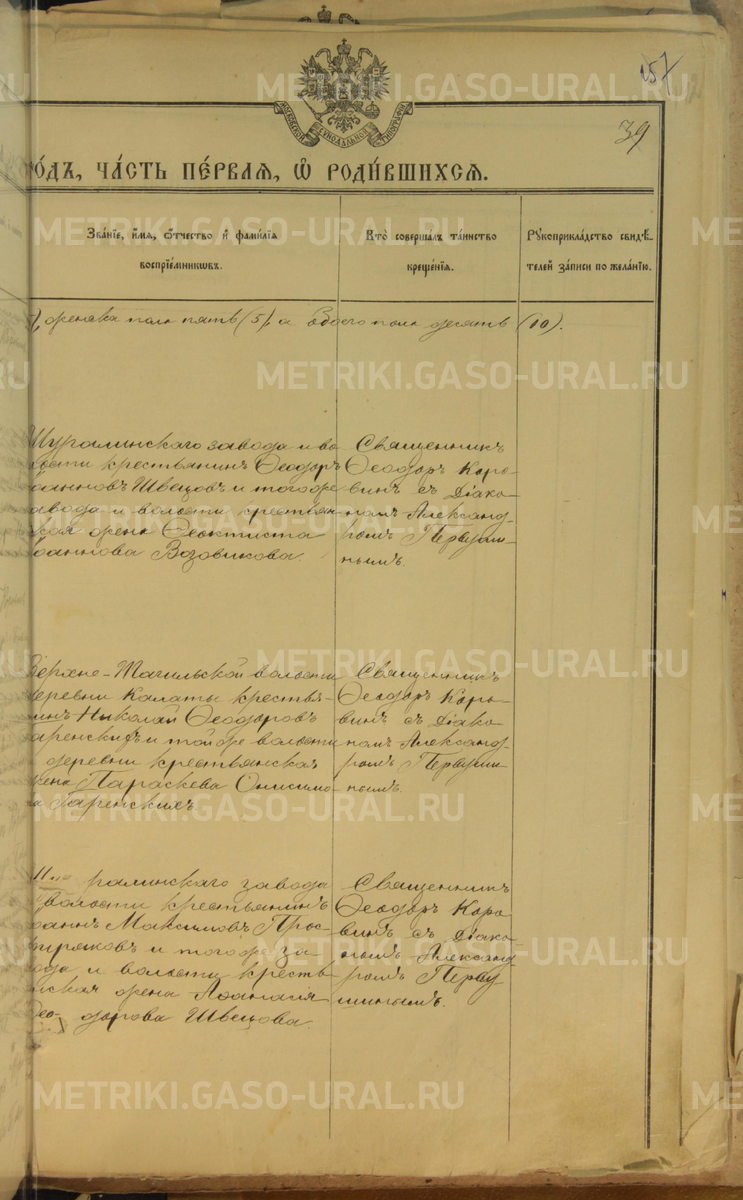 157
39
МОСКОВСКОЙ СѴНОДАЛЬНОЙ ТИПОГРАФІИ
О́ДЪ, ЧА́СТЬ ПЕ́РВАѦ, Ѽ РОДИ́ВШИХСѦ.
Зва́нїе, и́мѧ, ѻ́тчество и҆ фами́лїѧ
воспрїе́мникѡвъ.
Кто̀ соверша́лъ та́инство
креще́нїѧ.
Рꙋкоприкла́дство свидѣ́-
телей за́писи по жела́нїю.
женска полу пять (5), а обоего пола десять (10).
Шуралинскаго завода и во-
лости крестьянинъ Ѳеодоръ
Іоанновъ Швецовъ и тогоже
завода и волости крестьян-
ская жена Ѳеоктиста
Іоаннова Возовикова.
Священникъ
Ѳеодоръ Коро-
винъ съ Діако-
номъ Александ-
ромъ Первуши-
нымъ.
Верхне-Тагильской волости
деревни Калаты крестья-
нинъ Николай Ѳеодоровъ
Гаренскихъ и тойже волости
и деревни крестьянская
жена Параскева Онисимо-
ва Гаренскихъ
Священникъ
Ѳеодоръ Коро-
винъ съ Діако-
номъ Александ-
ромъ Первуши-
нымъ.
Шуралинскаго завода
и волости крестьянинъ
Іоаннъ Максимовъ Прос-
виряковъ и тогоже за-
вода и волости кресть-
янская жена Аѳанасія
Ѳео-дорова Швецова.
Священникъ
Ѳеодоръ Коро-
винъ съ Діако-
номъ Александ-
ромъ Перву-
шинымъ.
METRIKI.GASO-URAL.RU